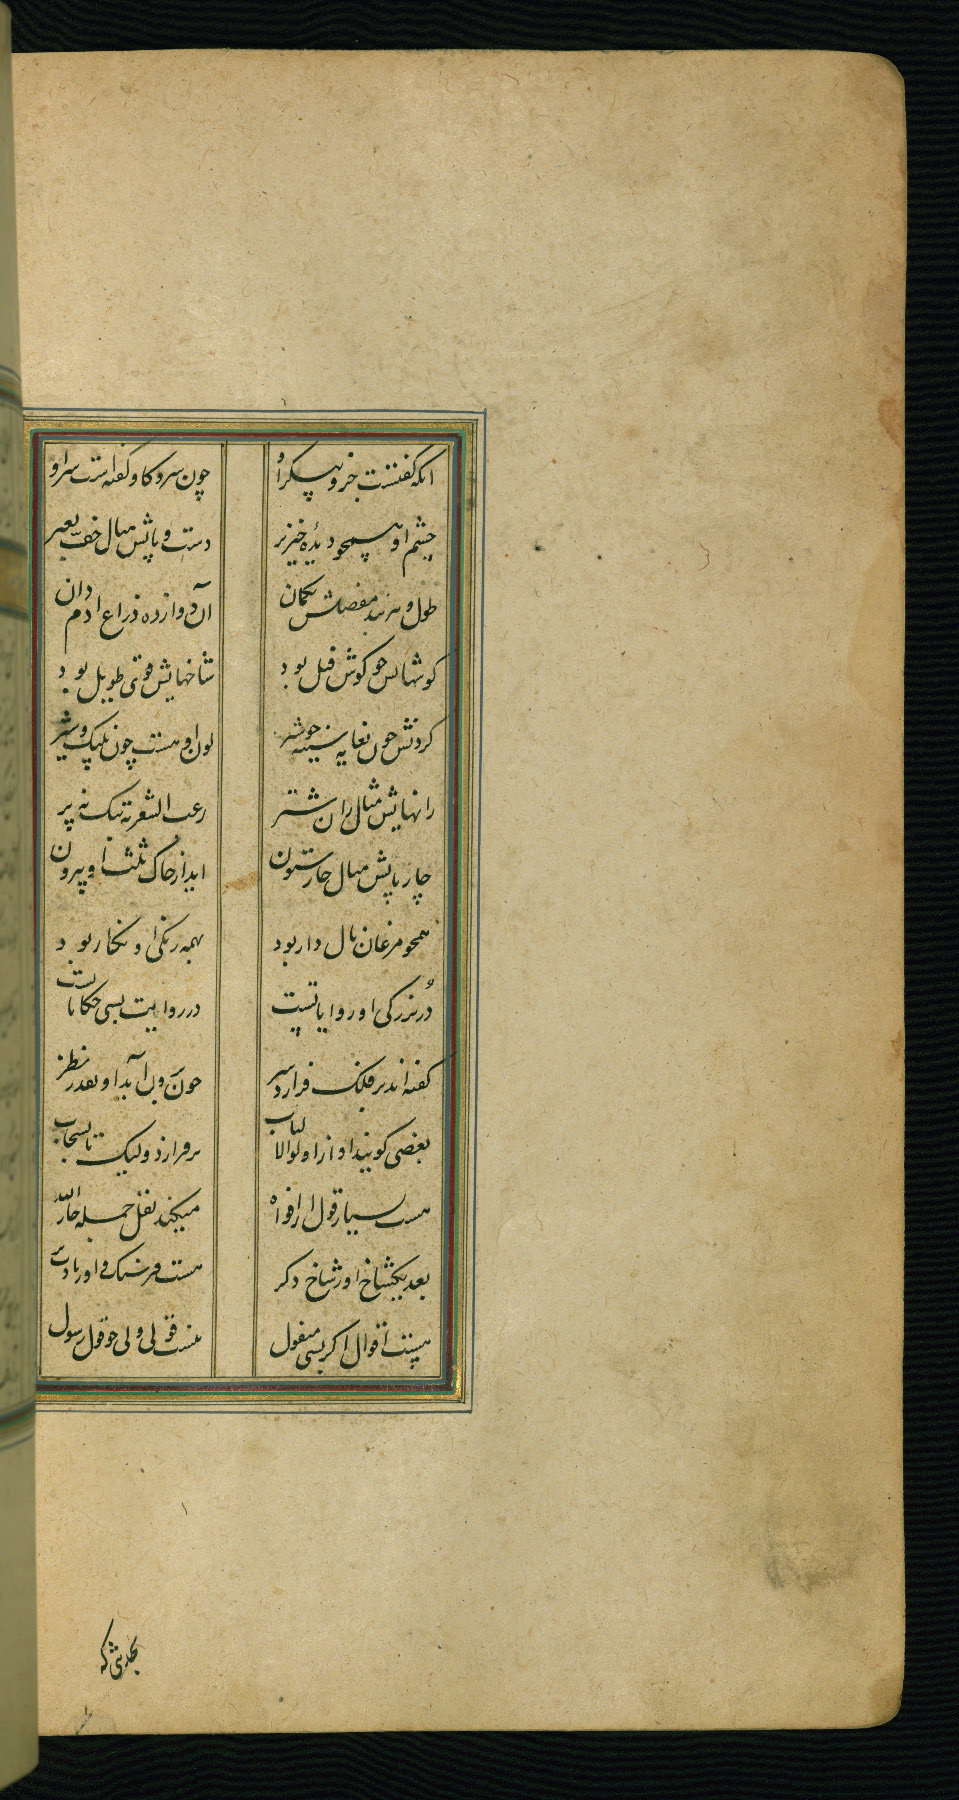 انکه گفتست جز و پیکر او چون سر و کاو گفته است سر او
چشم او همچو دیدهٔ خنزیر دست و پایش مثال خف بعیر
طول و هر بند مفصلش یکمان آن دوازده ذراع ادم دان
کوشهایش چو کوش فیل بود شاخهایش قوی طویل بود
کردنش چون نعایه سینه چو شیر لون او هست چون پلنک و شیر
رانهایش مثال ران شتر رعب الشعر تنک نه پر
چار پایش مثال چار ستون اید از خاک ثلث او بیرون
همچو مرغان بال دار بود بهمه رنکی او نکار بود
در بزرکی او روایاتست در روایت بسی حکایاتست
گفته اند بر فلک فرازد سر چون برون آید او بقدر نظر
بعضی گویند او از اولوالالباب بر فرازد ولیک تا بسحاب
هست بسیار قول از افواه میکند نقل جمله جار الله
بعد یکشاخ او ز شاخ دکر هست فرسنک
هست اقوال اکر بسی منقول نیست قولی ولی چو قول رسول